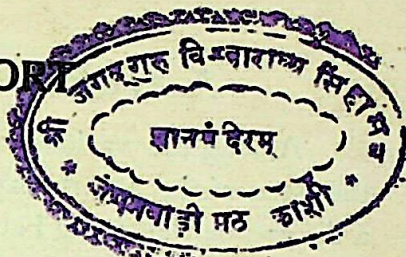 ORT
श्री जगद्गुरु विश्वाराध्य सिंहासन
ज्ञानमंदिरम्
* जंगमवाड़ी मठ काशी *